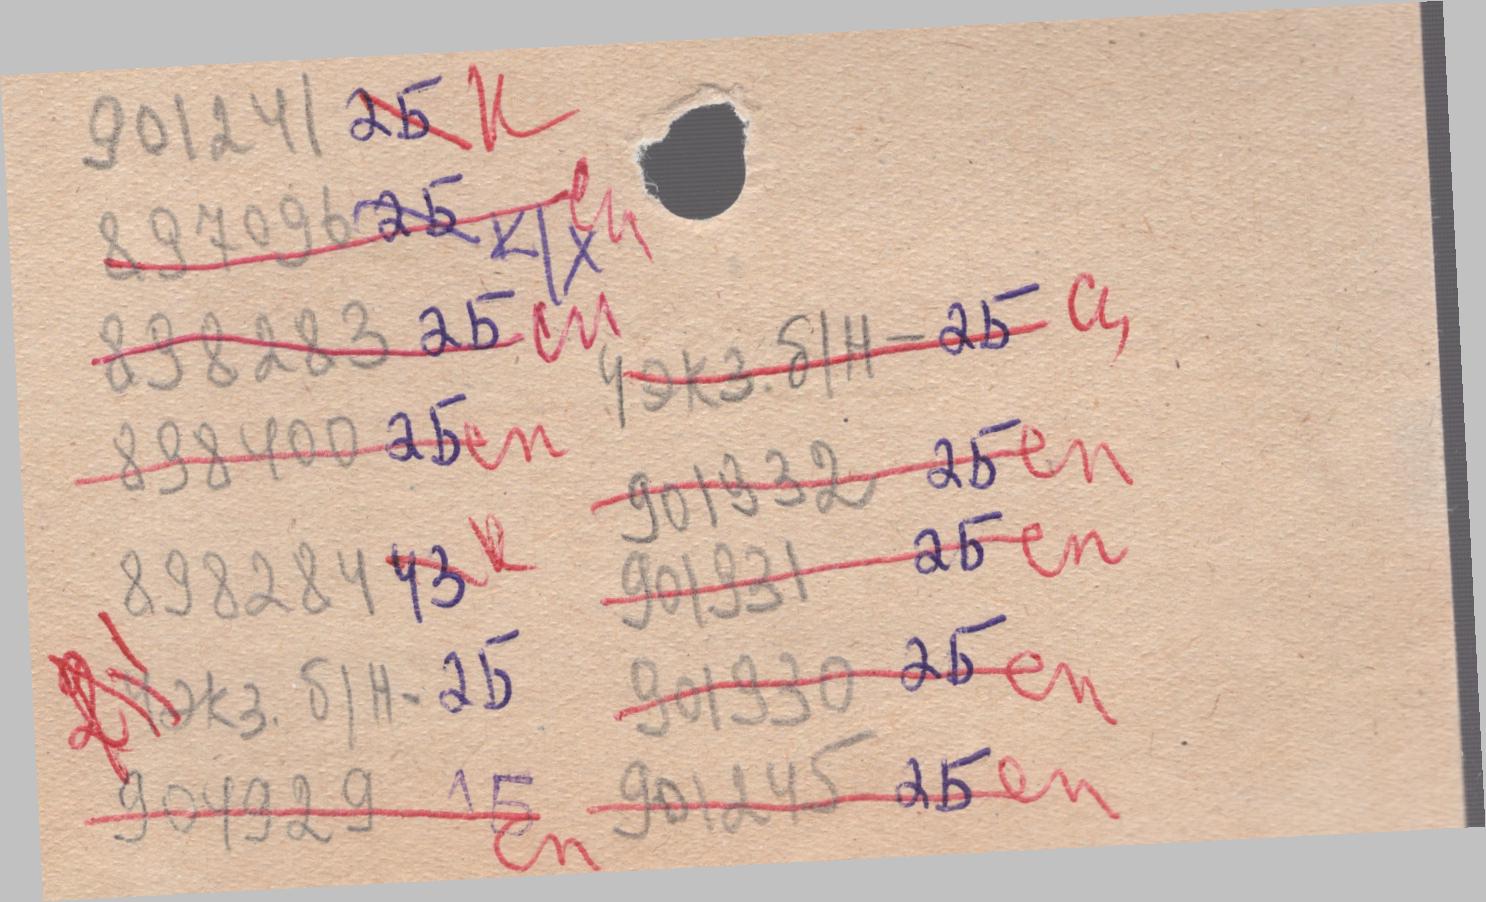 901241 2Б К
897096 2Б К/Х сп
898283 2Б сп
898400 2Б сп
898284 ЧЗ К
экз. б/н - 2Б
904929 1Б сп
4 экз. б/н - 2Б
901932 2Б сп
901931 2Б сп
901930 2Б сп
901245 2Б сп